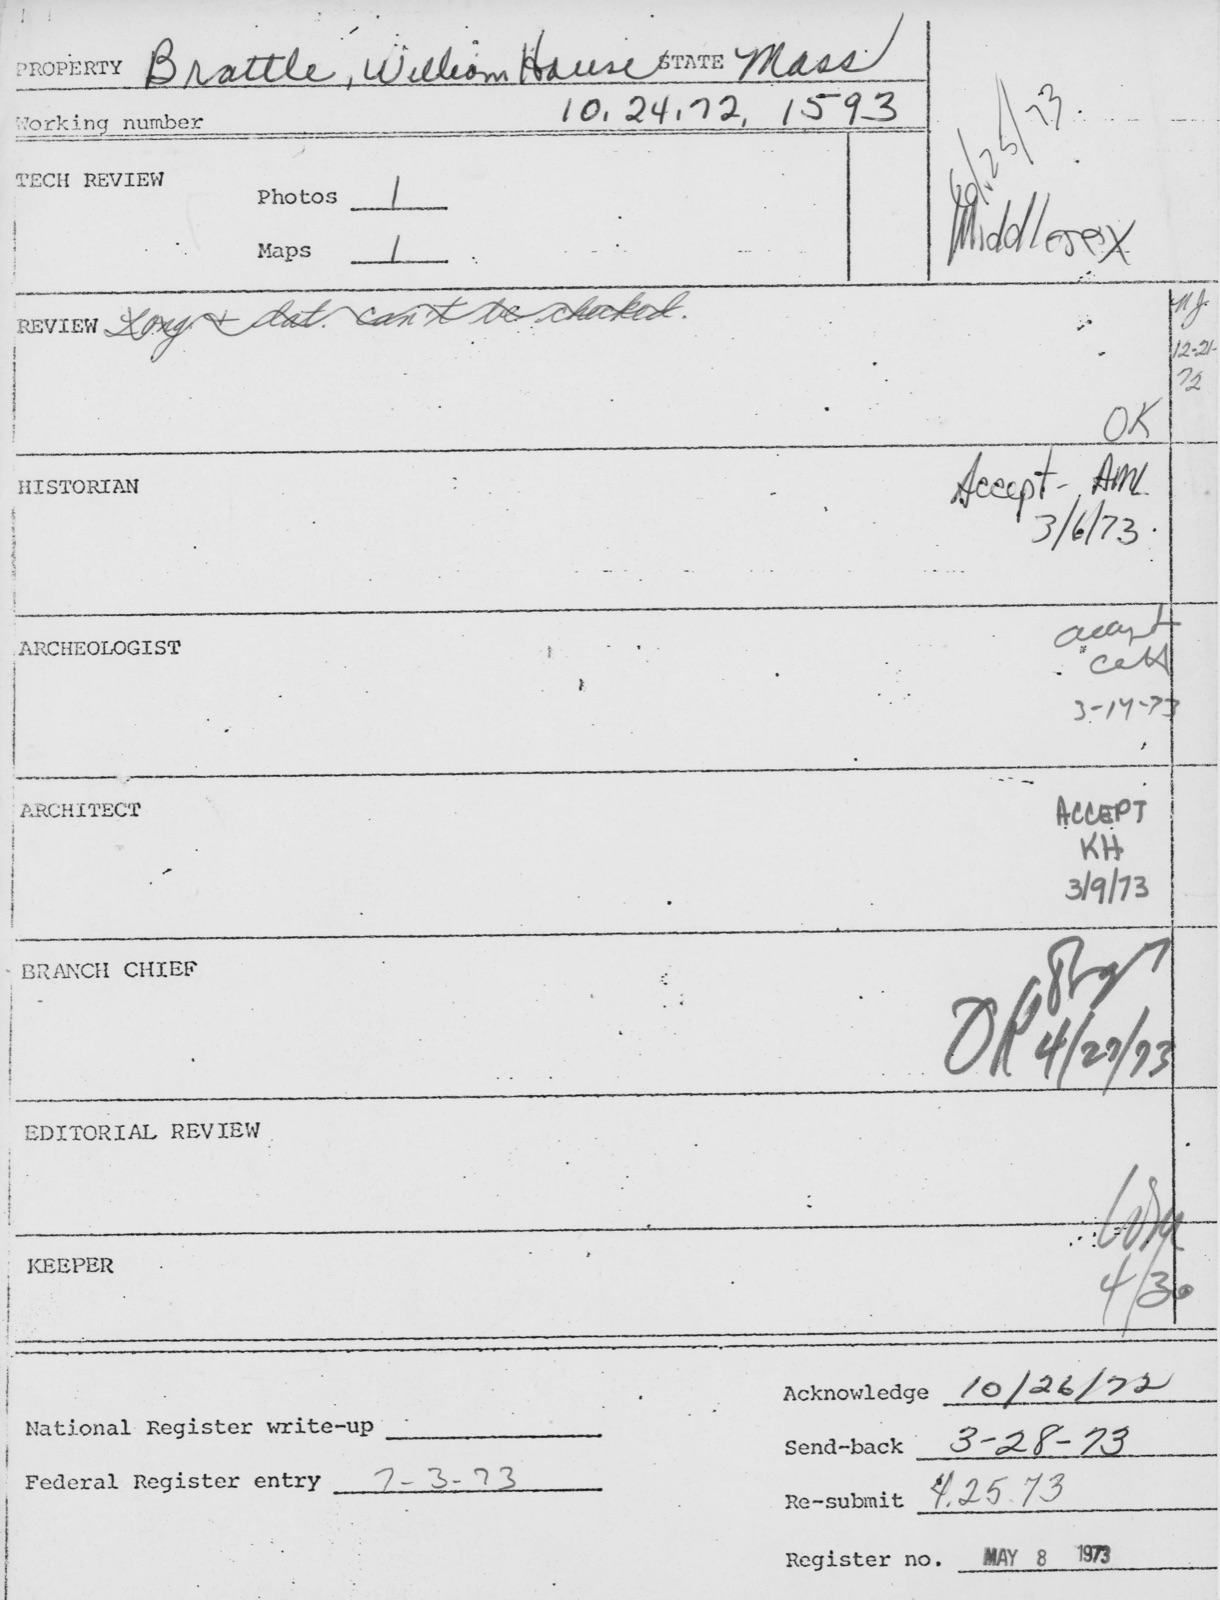 PROPERTY Brattle, William House STATE Mass
Working number 10.24.72. 1593
/25/73
Middlesex
TECH REVIEW
Photos 1
Maps 1
REVIEW Long. & Lat. can't be checked.
12-21-
72
OK
HISTORIAN
Accept - AML
3/6/73
ARCHEOLOGIST
accept
3-14-73
ARCHITECT
ACCEPT
KH
3/9/73
BRANCH CHIEF
OK 4/27/73
EDITORIAL REVIEW
KEEPER
4/30
Acknowledge 10/26/72
National Register write-up
Send-back 3-28-73
Federal Register entry 7-3-73
Re-submit 4.25.73
Register no. MAY 8 1973